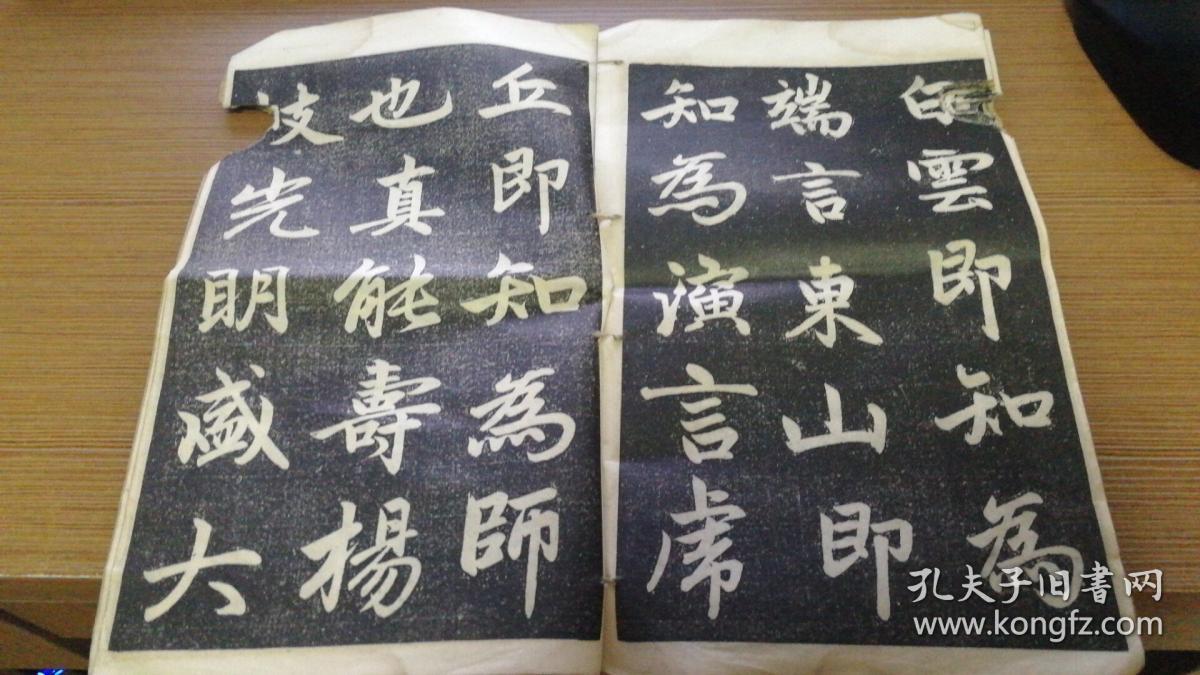 白雲即知為
端言東山即
知為演言虎
丘即知為師
也真能壽楊
岐先明盛大
孔夫子旧書网
www.kongfz.com